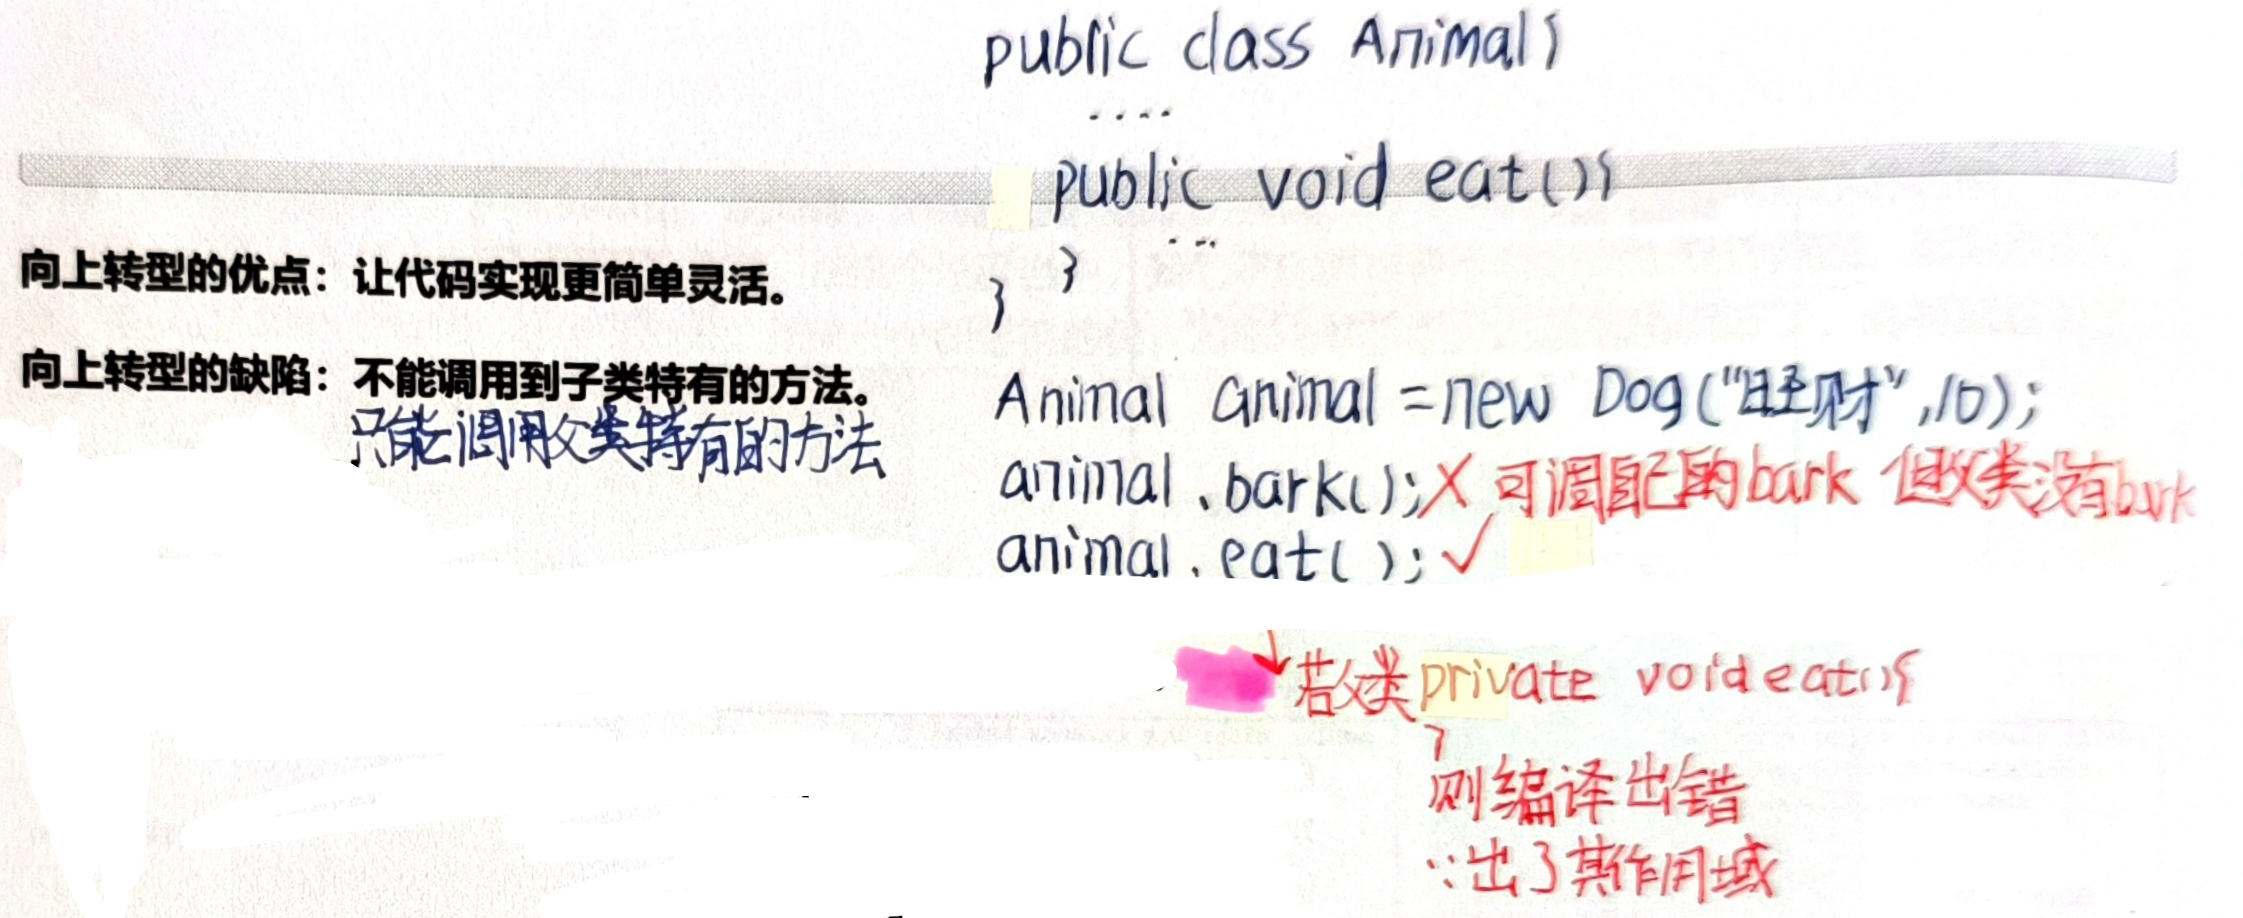 public class Animal{
....
public void eat(){
...
}
}
向上转型的优点：让代码实现更简单灵活。
向上转型的缺陷：不能调用到子类特有的方法。
只能调用父类特有的方法
Animal animal = new Dog("旺财",10);
animal.bark();X 可调自己的bark 但父类没有bark
animal.eat();✓
↓若父类private void eat(){
}
则编译出错
∵出了其作用域